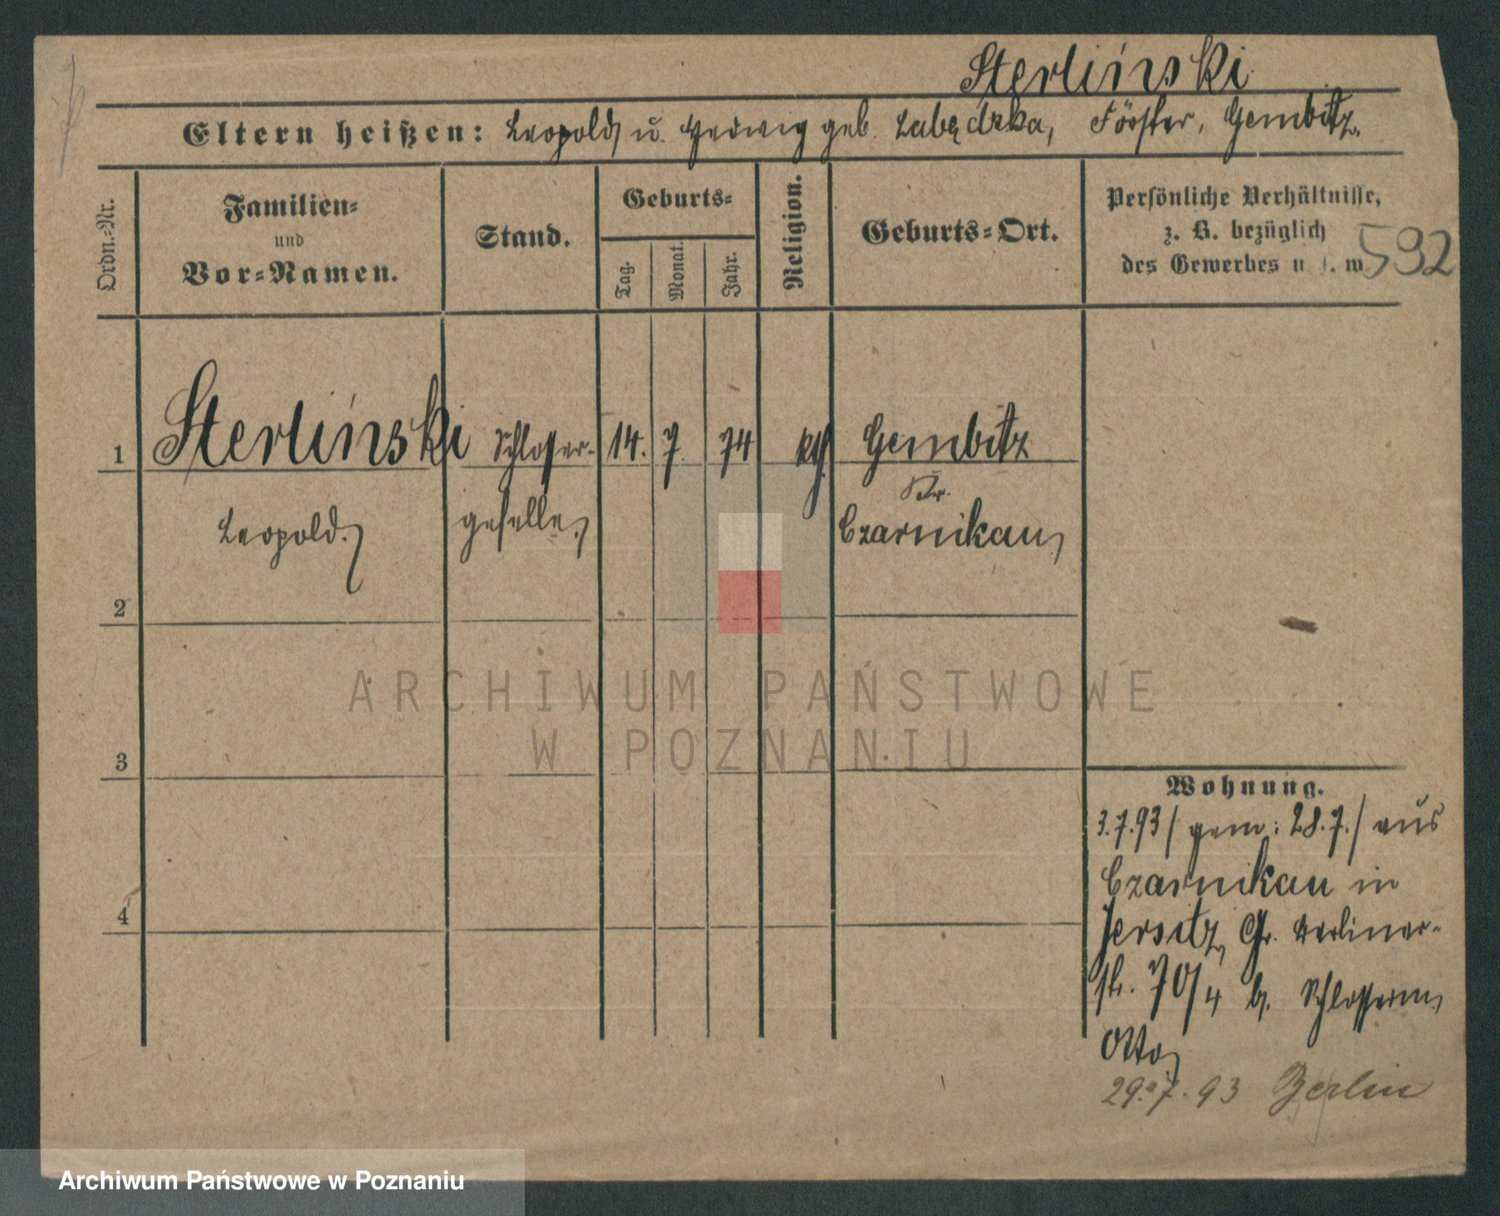 Sterliński
Eltern heißen: Leopold u. Hedwig geb. Labędzka, Förster, Gembitz.
Ordn.-Nr.
Familien-
und
Vor-Namen.
Stand.
Geburts-
Tag.
Monat.
Jahr.
Religion.
Geburts-Ort.
Persönliche Verhältnisse,
z. B. bezüglich
des Gewerbes u. s. w.
592
1 Sterliński Schlosser- 14. 7 74 kth. Gembitz
Kr.
Leopold. geselle. Czarnikau
2
3
4
Wohnung.
3.7.93 / gem: 28.7. / aus
Czarnikau in
Jersitz, Gr. Berliner-
str. 70/4 b. Schlosserm.
Otto
29.7.93 Berlin
ARCHIWUM PAŃSTWOWE
W POZNANIU
Archiwum Państwowe w Poznaniu